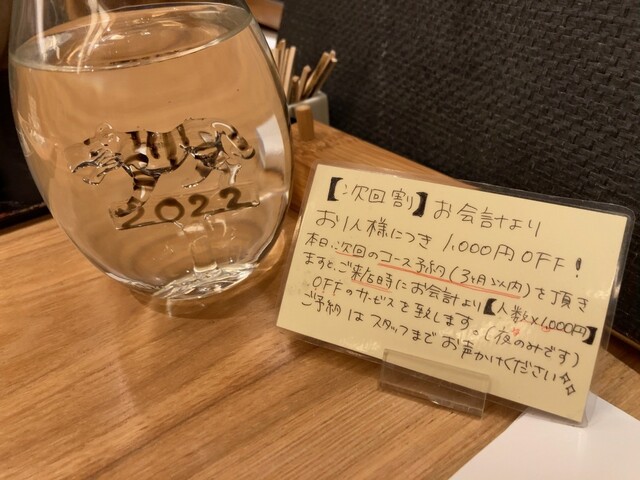 2022
【次回割】お会計より
お1人様につき 1,000円OFF!
本日、次回のコース予約(3ヶ月以内)を頂き
ますと、ご来店時にお会計より【人数×1,000円】
OFFのサービスを致します。(夜のみです)
ご予約はスタッフまでお声かけください